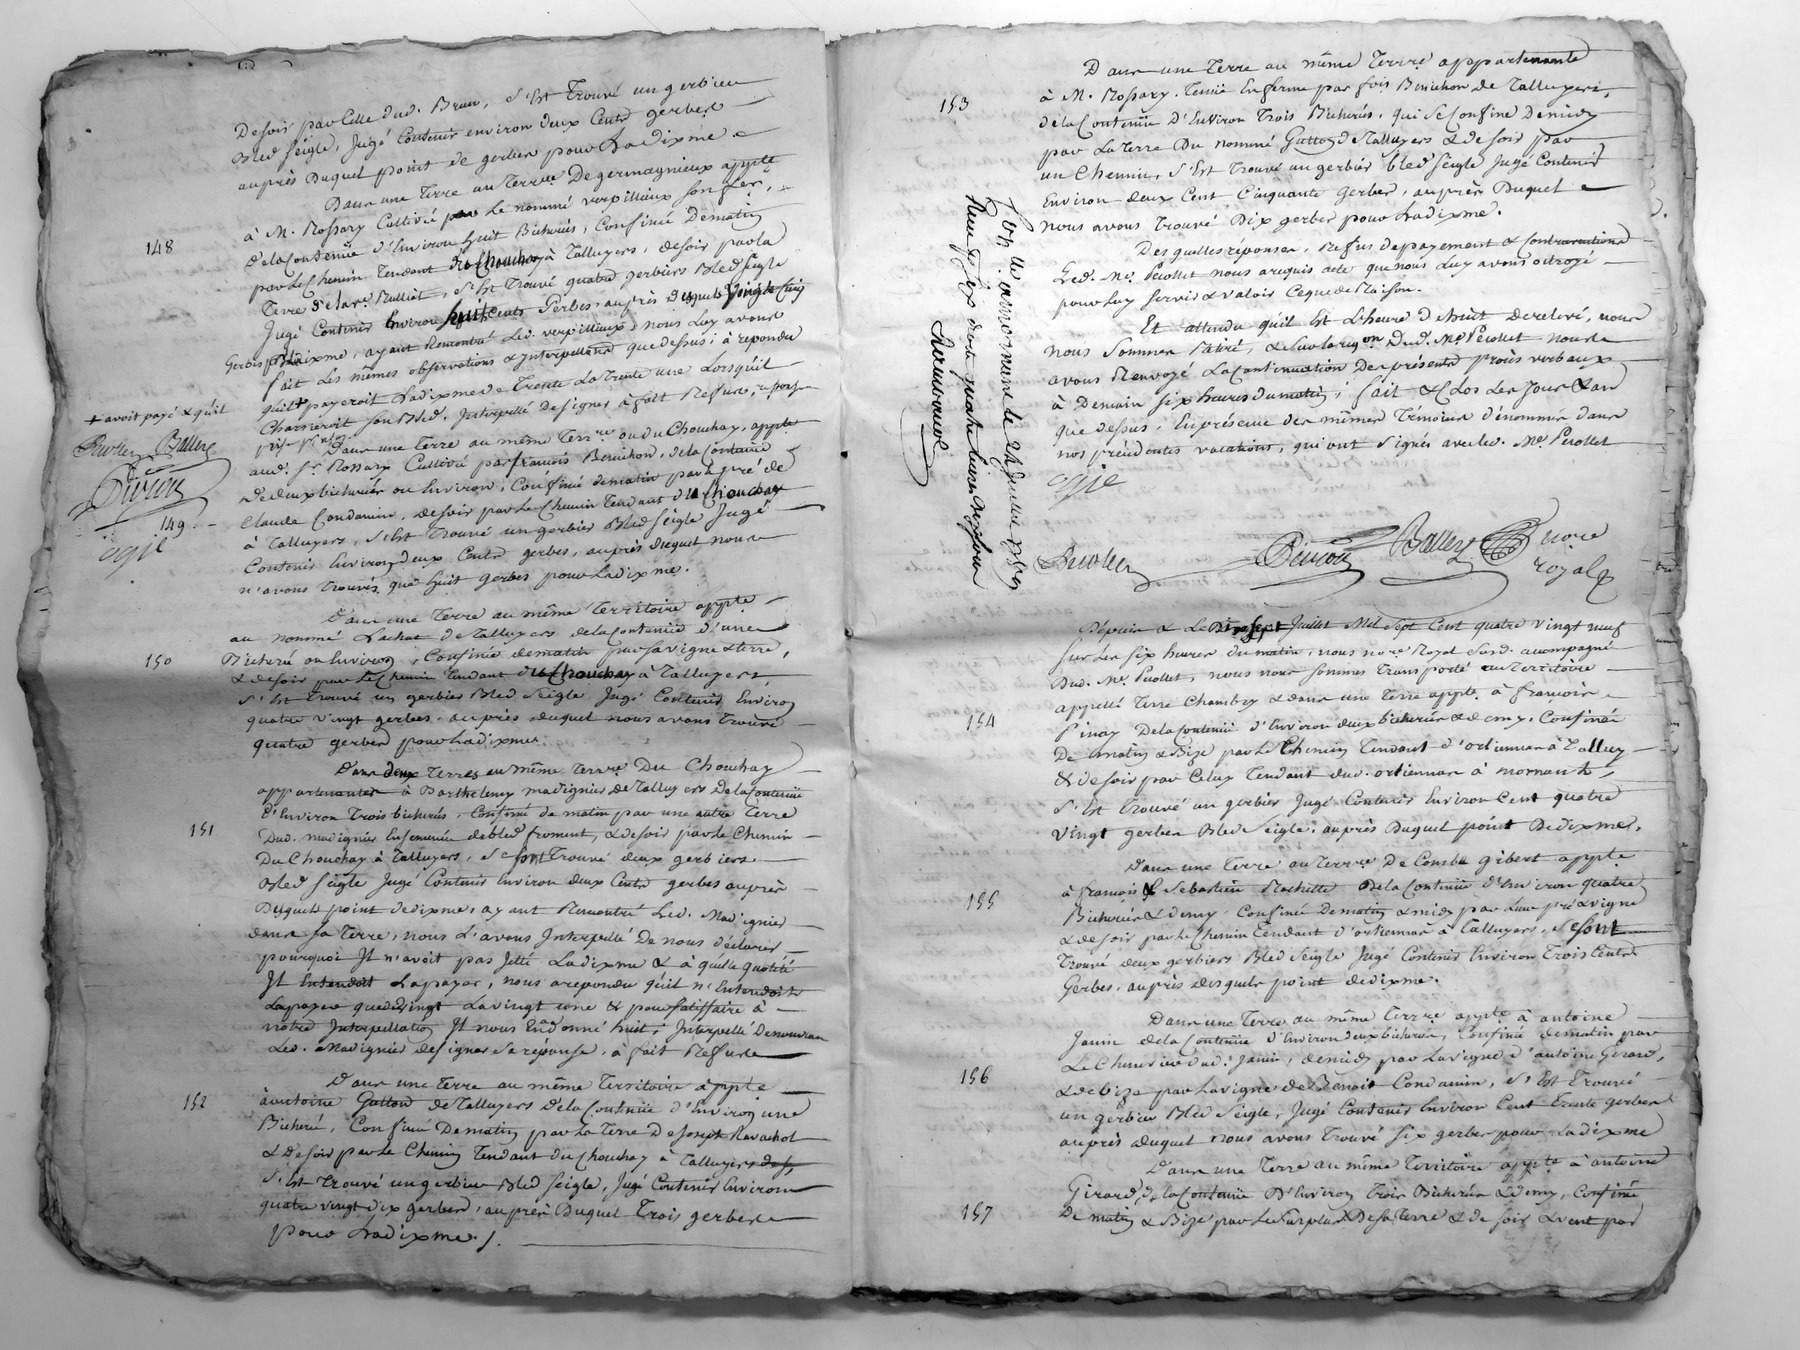 De soir par Celle dud. Brun, s'Est Trouvé un gerbier
Bled Seigle, Jugé Contenir environ deux Cents gerbes
auprès Duquel point de gerbes pour Ladixme.
Dans une Terre au Terr.re De germagnieux appte
à M. Rossary Cultivée par Le nommé verpillieux son fer,
148
delaContenüe d'Environ huit Bicherées, Confinée Dematin
par Le Chemin Tendant du Chouchay à Talluyers, desoir parla
Terre delad.e Rulliat, s'Est Trouvé quatre gerbiers Bled Seigle
Jugé Contenir Environ Sept Cents Gerbes auprès desquels vingt Cinq
Gerbes p. Ladixme, ayant Remontré Led. verpillieux, nous Luy avons
fait Les mêmes observations & Interpellations que dessus; à repondu
qu'il payeroit Ladixme de Trente La Trente une Lorsqu'il
+ avoit payé & qu'il
Charrieroit son Bled. Interpellé De signer à fait Refus,
Dans une Terre au même Terr.re ou du Chouchay, appte
aud. Sr. Rossary Cultivée par françois Benichon, dela Contenüe
De deux bicherées ou Environ, Confinée dematin par Le pré de
149
Claude Condamin, de soir par Le Chemin Tendant du Chouchay
à Talluyers, s'Est Trouvé un gerbier Bled Seigle Jugé
Contenir Environ deux Cents gerbes, auprès duquel nous
n'avons trouvés que huit gerbes pour Ladixme.
Dans une Terre au même Territoire appte
au nommé Lachat de Talluyers delaContenüe d'une
150
Bicherée ou Environ, Confinée dematin par sa vigne & terre,
& de soir par Le Chemin Tendant du Chouchay à Talluyers,
s'Est trouvé un gerbier Bled Seigle Jugé Contenir Environ
quatre vingt gerbes, auprès duquel nous avons trouvé
quatre gerbes pour Ladixme.
Dans deux Terres au même Terr.re Du Chouchay
appartenantes à Barthelemy madignier de Talluyers DelaContenüe
d'Environ Trois bicherées, Confinée de matin par une autre Terre
151
Dud. madignier Ensemencée debled froment, & desoir par Le Chemin
Du Chouchay à Talluyers, se sont Trouvé deux gerbiers
Bled Seigle Jugé Contenir Environ deux Cents gerbes auprès
Desquels point dedixme, ayant Rencontré Led. Madignier
dans sa Terre, nous L'avons Interpellé De nous déclarer
pourquoi Il n'avoit pas Jetté Ladixme & à quelle quotité
Il Entendoit Lapayer, nous arepondu qu'il n'Entendoit
Lapayer que de vingt La vingt une & pour satisfaire à
notre Interpellation Il nous En a donné huit; Interpellé Denouveau
Led. Madignier designer Sa réponse, à fait Refus
Dans une Terre au même Territoire appte
152
à antoine Gutton de Talluyers DelaContenüe d'Environ une
Bicherée, Confinée Dematin par La Terre De Joseph Ravachol
& De soir par Le Chemin Tendant du Chouchay à Talluyers
s'Est Trouvé un gerbier Bled Seigle, Jugé Contenir Environ
quatre vingt dix gerbes, auprès Duquel Trois gerbes
pour Ladixme.
Dans une Terre au même Terr.re appartenante
153
à M. Rossary. Tenüe En ferme par fois Benichon de Talluyers,
delaContenüe d'Environ Trois Bicherées, qui se Confine De midy
par La Terre Du nommé Gutton de Talluyers & de soir par
un Chemin, s'Est Trouvé un gerbier bled seigle Jugé Contenir
Environ deux Cent Cinquante Gerbes, auprès Duquel
nous avons Trouvé Dix gerbes pour Ladixme.
Desquelles réponses, Refus depayement & Contraventions
Led. Me. Perollet nous a requis acte que nous Luy avons octroyé
pour Luy servir & valoir Ceque de Raison.
Et attendu qu'il Est L'heure d'huit Derelevé, nous
nous sommes Retiré, & surlarèq.on Dud. Me. Perollet nous
avons Renvoyé La Continuation Des présents procès verbaux
à Demain six heures dumatin; fait & Clos Les Jour & an
que dessus, En présence des mêmes Témoins dénommés dans
nos précédentes vacations, qui ont signés avec led. Me. Perollet
Balley
royal
Depuis & Le Dixsept Juillet Mil Sept Cent quatre vingt neuf
sur Les six heures du matin, nous no.re Royal Sousd. acompagné
Dud. Me. Perollet, nous nous sommes transporté au Territoire
appellé Terre Chambry & dans une Terre appte. à françois
154
Pinay Dela Contenüe d'Environ deux bicherées & demy, Confinée
De matin & Bize par Le Chemin Tendant d'orliennas à Talluy
& de soir par Celuy Tendant dud. orliennas à mornant,
s'Est trouvé un gerbier Jugé Contenir Environ Cent quatre
vingt gerbes Bled Seigle, auprès Duquel point Dedixme.
Dans une Terre au Terr.re De Combe gibert appte
155
à françois & Sebastien Rochette DelaContenüe d'Environ quatre
Bicherées & demy Confinée Dematin & midy par Leur pré & vigne
& de soir par Le Chemin Tendant d'orliennas à Talluyers, se sont
Trouvé deux gerbiers Bled Seigle Jugé Contenir Environ Trois Cents
Gerbes, auprès desquels point dedixme.
Dans une Terre au même Terr.re appte à antoine
Janin dela Contenüe d'Environ deux bicherées, Confinée dematin par
156
Le Chenevier dud. Janin, demidy par La vigne d'antoine Girard,
& debize par La vigne de Benoit Condamin, s'Est Trouvé
un gerbier Bled Seigle, Jugé Contenir Environ Cent Trente gerbes
auprès duquel nous avons trouvé six gerbes pour Ladixme
Dans une Terre au même Territoire appte à antoine
Girard, delaContenüe D'Environ Trois Bicherées & demy, Confinée
157
De matin & Bize par Le Surplus De sa Terre & de soir & vent par